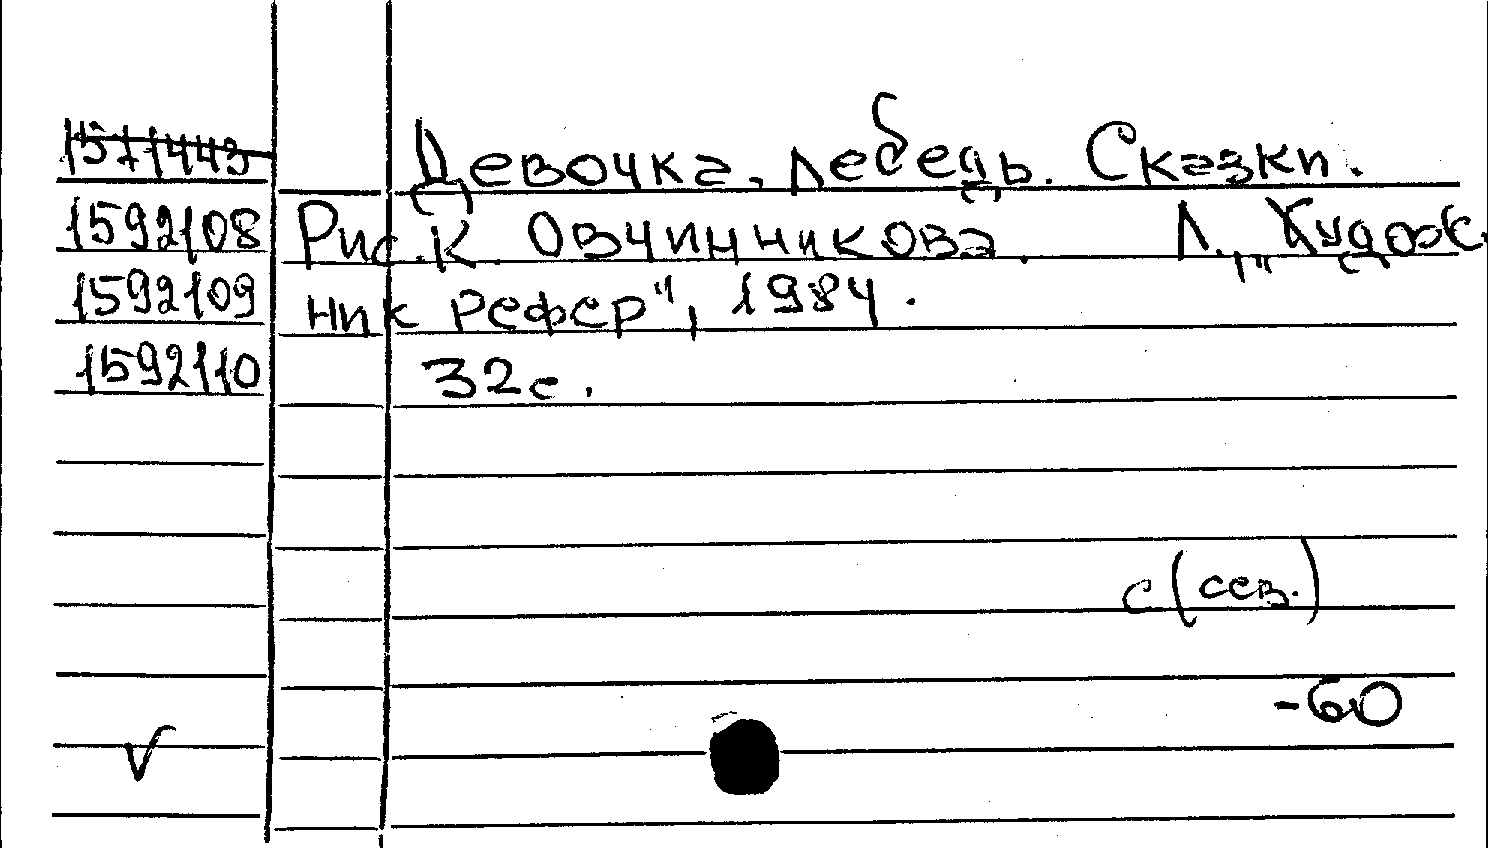 1571443 Девочка-лебедь. Сказки.
1592108 Рис. К. Овчинникова. Л., „Худож
1592109 ник РСФСР", 1984.
1592110 32с.
с (сев.)
-60